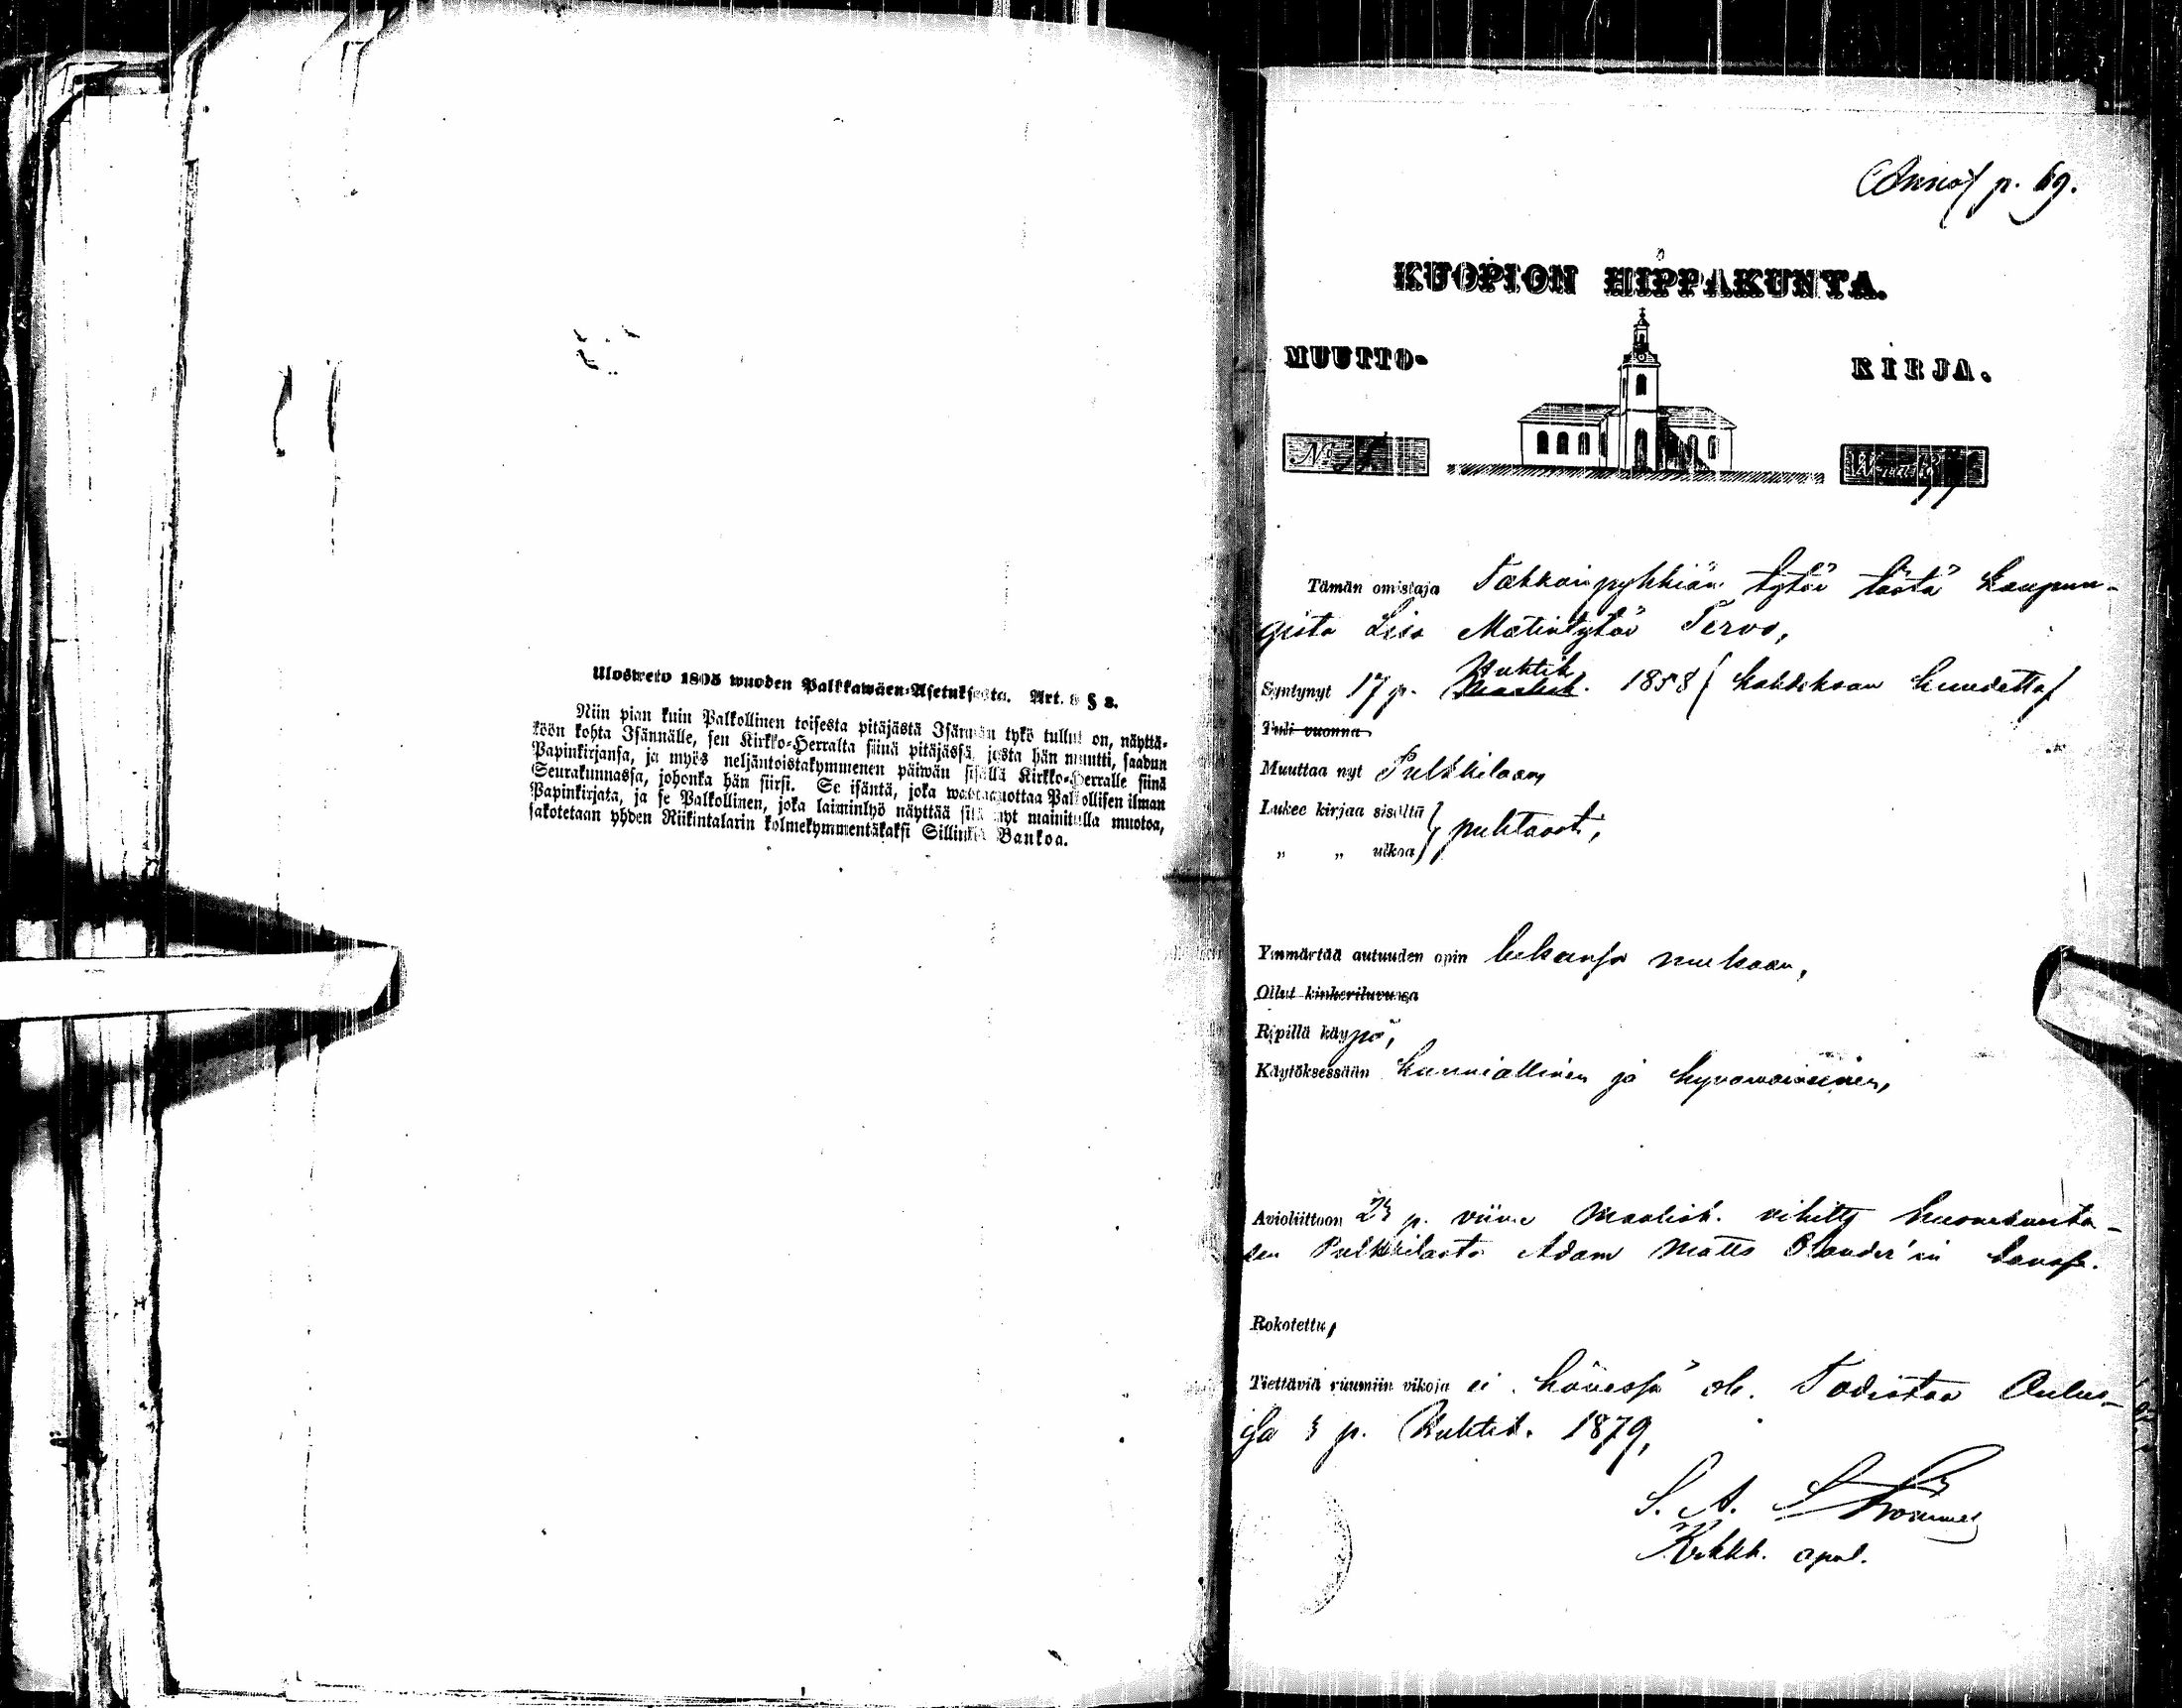 Ulosweto 1805 wuoden Palkkawäen-Asetuksesta. Art. 8 § 3.
Niin pian kuin Palkollinen toisesta pitäjästä Isännän tykö tullut on, näyttä-
köön kohta Isännälle, sen Kirkko-Herralta siinä pitäjässä, josta hän muutti, saadun
Papinkirjansa, ja myös neljäntoistakymmenen päiwän sisällä Kirkko-Herralle siinä
Seurakunnassa, johonka hän siirsi. Se isäntä, joka wastaanottaa Palkollisen ilman
Papinkirjata, ja se Palkollinen, joka laiminlyö näyttää sitä nyt mainitulla muotoa,
sakotetaan yhden Riikintalarin kolmekymmentäkaksi Sillinkiä Bankoa.
p. 69.
KUOPION HIPPAKUNTA.
MUUTTO- KIRJA.
No
Tämän omistaja tytär tästä kaupun-
gista Lisa Matintytär Tervo,
Syntynyt 17 p. Huhtik. Maalisk. 1858 (kahdeksan kuudetta)
Tuli vuonna
Muuttaa nyt Pulkkilaan,
Lukee kirjaa sisältä } puhtaasti,
" " ulkoa
Ymmärtää autuuden opin lukunsa mukaan,
Ollut kinkeriluvussa
Ripillä käypä,
Käytöksessään kunniallinen ja hyvämaineinen,
Avioliittoon 23 p. viime Maalisk. vihitty
Pulkkilasta Adam Matts Olander'in kanssa.
Rokotettu,
Tiettäviä ruumiin vikoja ei hänessä ole. Todistaa Oulus-
sa 3 p. Huhtik. 1879,
S. A.
Kirkkh. apul.